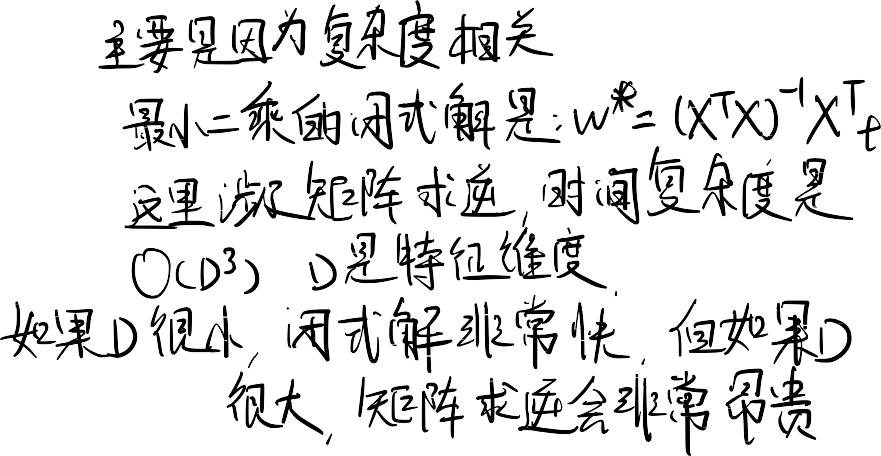 主要是因为复杂度相关
最小二乘的闭式解是: w* = (XᵀX)⁻¹Xᵀt
这里涉及矩阵求逆, 时间复杂度是
O(D³) D是特征维度
如果D很小, 闭式解非常快, 但如果D
很大, 矩阵求逆会非常昂贵